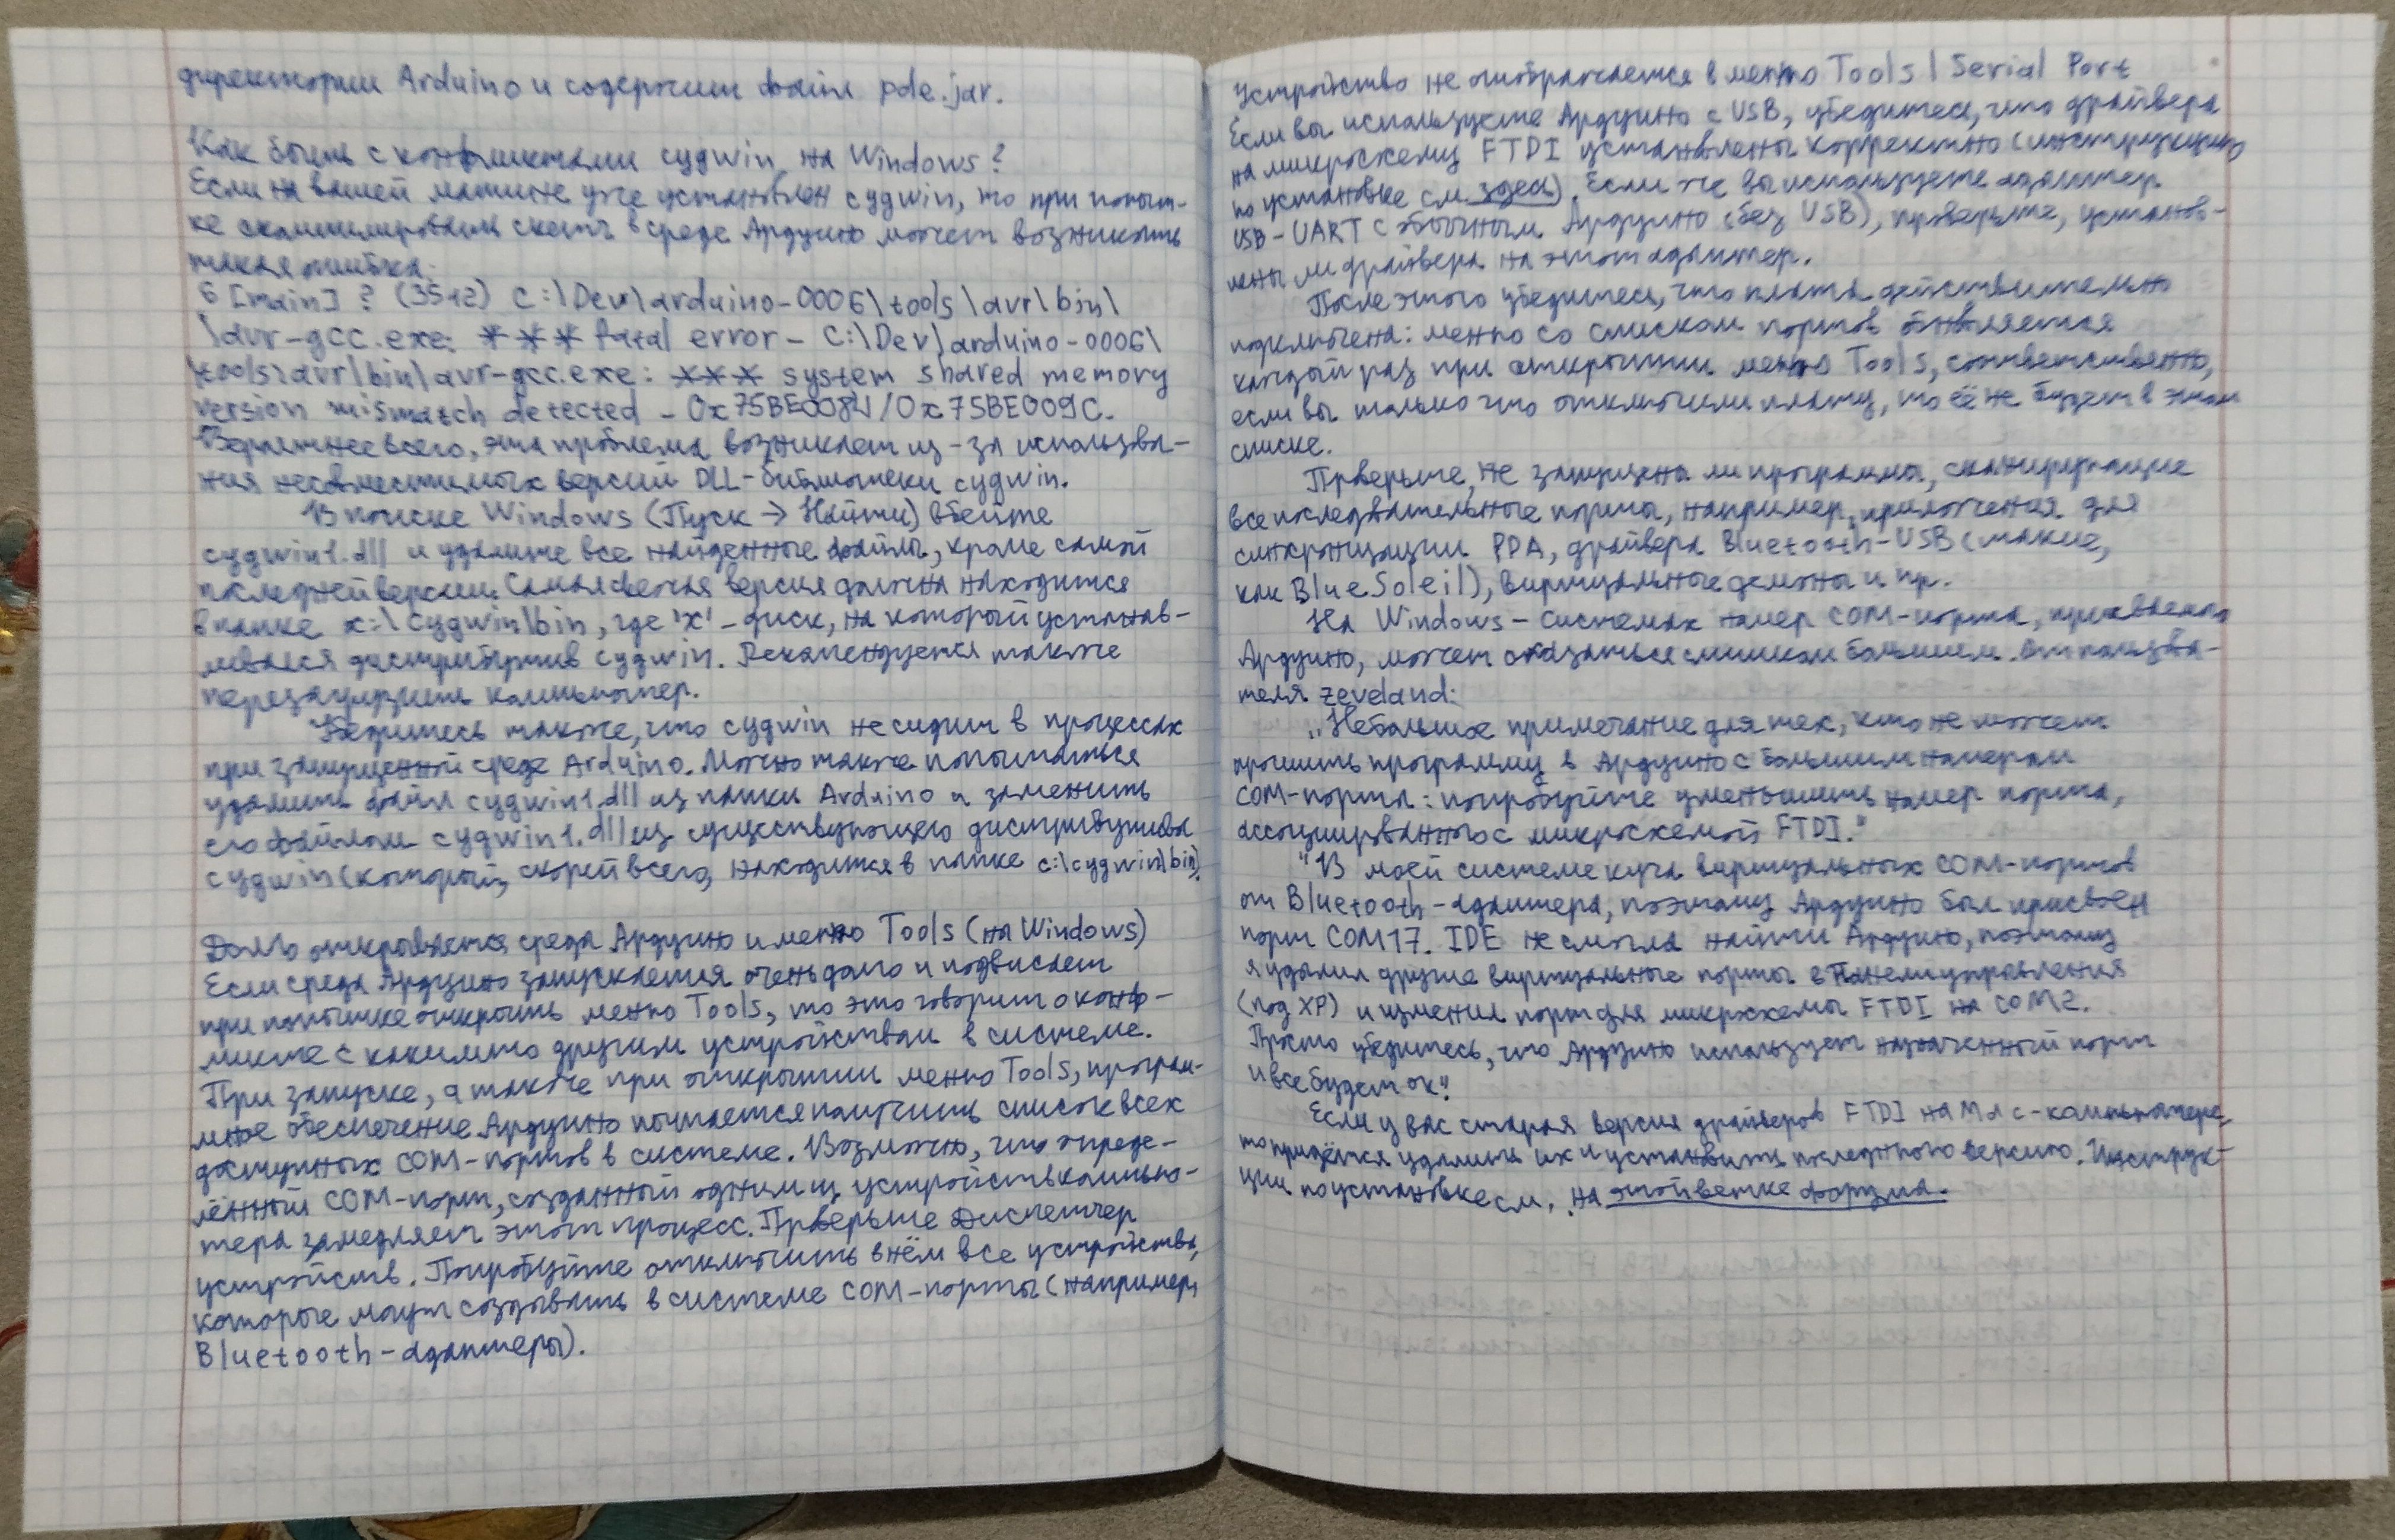 директории Arduino и содержит файл pde.jar.
Как быть с конфликтами cygwin на Windows?
Если на вашей машине уже установлен cygwin, то при попыт-
ке скомпилировать скетч в среде Ардуино может возникать
такая ошибка:
6 [main] ? (3512) C:\Dev\arduino-0006\tools\avr\bin\
\avr-gcc.exe: *** fatal error - C:\Dev\arduino-0006\
\tools\avr\bin\avr-gcc.exe: *** system shared memory
version mismatch detected - 0x75BE0084/0x75BE009C.
Вероятнее всего, эта проблема возникает из-за использова-
ния несовместимых версий DLL-библиотеки cygwin.
В поиске Windows (Пуск → Найти) вбейте
cygwin1.dll и удалите все найденные файлы, кроме самой
последней версии. Самая свежая версия должна находится
в папке x:\cygwin\bin, где 'x' - диск, на который устанав-
ливался дистрибутив cygwin. Рекомендуется также
перезагрузить компьютер.
Убедитесь также, что cygwin не сидит в процессах
при запущенной среде Arduino. Можно также попытаться
удалить файл cygwin1.dll из папки Arduino и заменить
его файлом cygwin1.dll из существующего дистрибутива
cygwin (который, скорей всего, находится в папке c:\cygwin\bin).
Долго открывается среда Ардуино и меню Tools (на Windows)
Если среда Ардуино запускается очень долго и подвисает
при попытке открыть меню Tools, то это говорит о конф-
ликте с каким то другим устройством в системе.
При запуске, а также при открытии меню Tools, програм-
мное обеспечение Ардуино пытается получить список всех
доступных COM-портов в системе. Возможно, что опреде-
лённый COM-порт, созданный одним из устройств компью-
тера замедляет этот процесс. Проверьте Диспетчер
устройств. Попробуйте отключить в нём все устройства,
которые могут создавать в системе COM-порты (например,
Bluetooth-адаптеры).
Устройство не отображается в меню Tools | Serial Port
Если вы используете Ардуино с USB, убедитесь, что драйвера
на микросхему FTDI установлены корректно (инструкцию
по установке см. здесь). Если же вы используете адаптер
USB-UART с обычным Ардуино (без USB), проверьте, установ-
лены ли драйвера на этот адаптер.
После этого убедитесь, что плата действительно
подключена: меню со списком портов обновляется
каждый раз при открытии меню Tools, соответственно,
если вы только что отключили плату, то её не будет в этом
списке.
Проверьте, не запущена ли программа, сканирующие
все последовательные порты, например, приложения для
синхронизации PDA, драйвера Bluetooth-USB (такие,
как BlueSoleil), виртуальные демоны и пр.
На Windows-системах номер COM-порта, присвоенного
Ардуино, может оказаться слишком большим. От пользова-
теля zeveland:
"Небольшое примечание для тех, кто не может
прошить программу в Ардуино с большим номером
COM-порта: попробуйте уменьшить номер порта,
ассоциированного с микросхемой FTDI."
"В моей системе куча виртуальных COM-портов
от Bluetooth-адаптера, поэтому Ардуино был присвоен
порт COM17. IDE не смогла найти Ардуино, поэтому
я удалил другие виртуальные порты в Панели управления
(под XP) и изменил порт для микросхемы FTDI на COM2.
Просто убедитесь, что Ардуино использует назначенный порт
и все будет ок."
Если у вас старая версия драйверов FTDI на Мас-компьютере,
то придётся удалить их и установить последнюю версию. Инструк-
ции по установке см. на этой ветке форума.